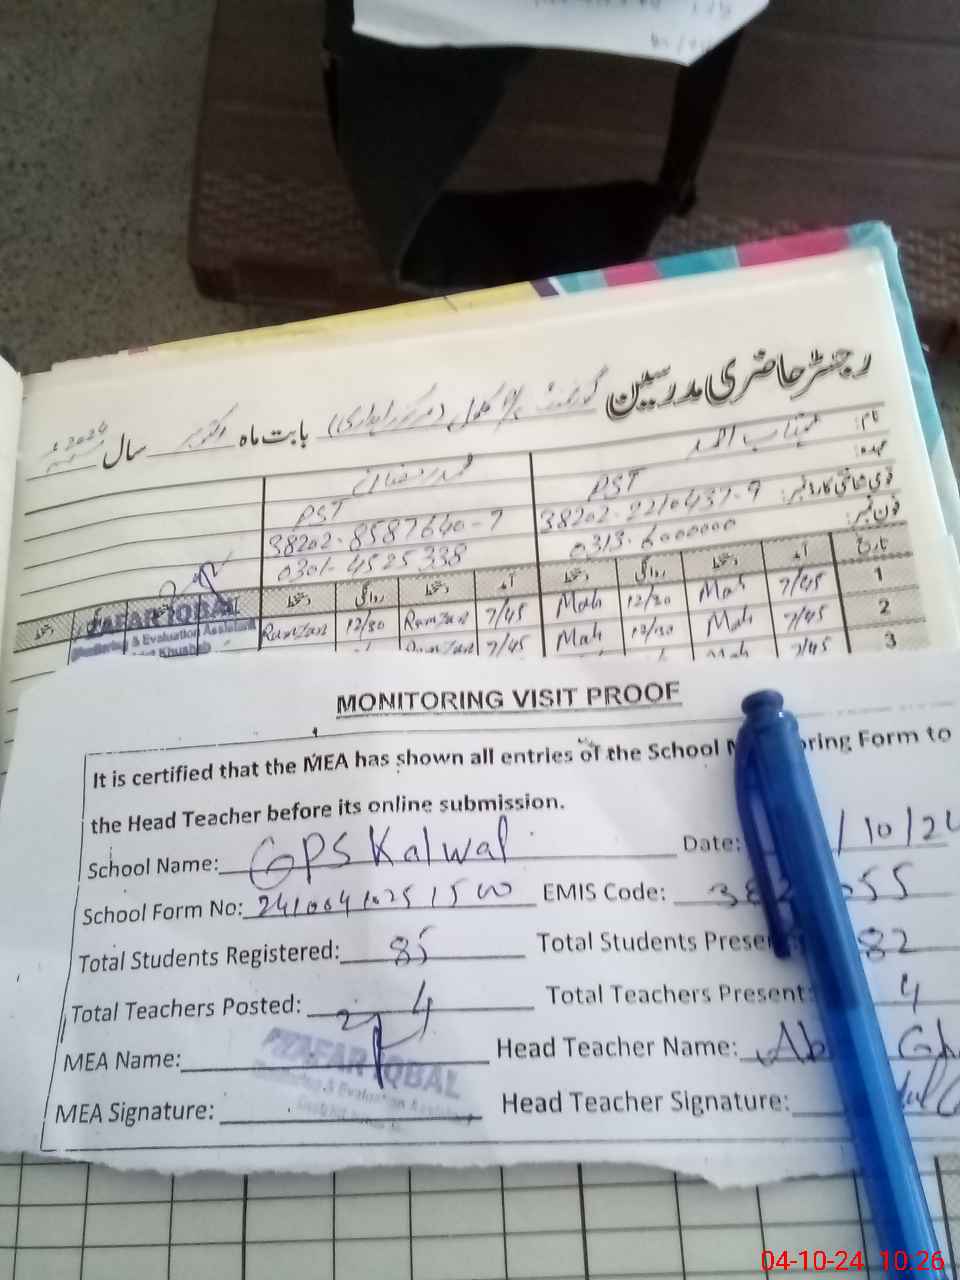 رجسٹر حاضری مدرسین گورنمنٹ بابت ماہ اکتوبر سال 2024
نام:
عہدہ: PST PST
قومی شناختی کارڈ نمبر: 38202-2210437-9 38202-8587640-7
فون نمبر: 0313-6000000 0301-4525338
تاریخ آمد دستخط روانگی دستخط آمد دستخط روانگی دستخط
1 7/45 Mah 12/30 Mah 7/45 Ramzan 12/30 Ramzan
2 7/45 Mah 12/30 Mah 7/45 Ramzan
3 7/45 Mah
ZAFAR IQBAL
Monitoring & Evaluation Assistant
District Khushab
MONITORING VISIT PROOF
It is certified that the MEA has shown all entries of the School Form to
the Head Teacher before its online submission.
School Name: GPS Kalwal Date: /10/24
School Form No: EMIS Code:
Total Students Registered: 85 Total Students Present 82
Total Teachers Posted: 4 Total Teachers Present: 4
MEA Name: Head Teacher Name:
ZAFAR IQBAL
Monitoring & Evaluation Assistant
MEA Signature: Head Teacher Signature:
04-10-24 10:26